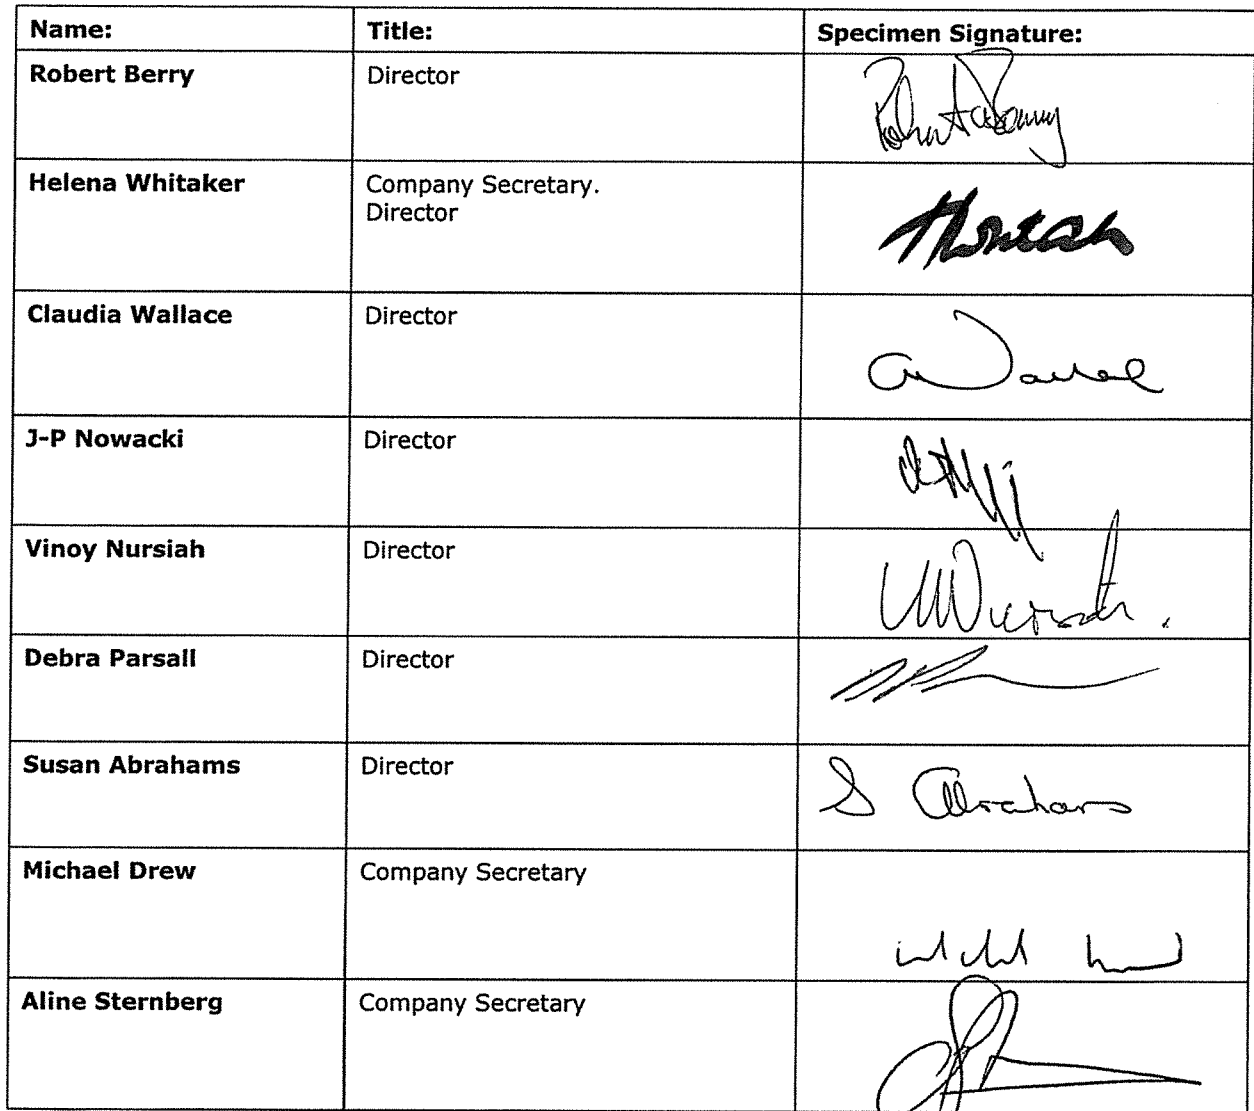 Name: Title: Specimen Signature:
Robert Berry Director
Helena Whitaker Company Secretary.
Director
Claudia Wallace Director
J-P Nowacki Director
Vinoy Nursiah Director
Debra Parsall Director
Susan Abrahams Director S Abrahams
Michael Drew Company Secretary
Aline Sternberg Company Secretary